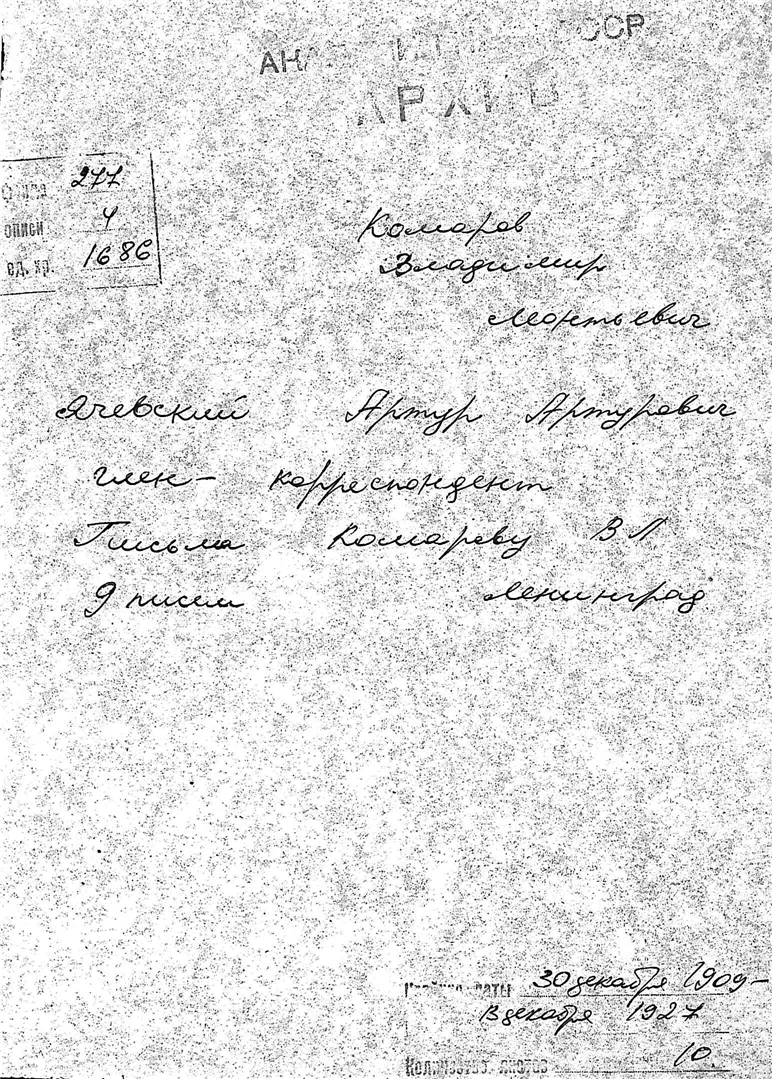 АРХИВ
277
описи 4
ед. хр. 1686
Комаров
Владимир
Леонтьевич
Ячевский Артур Артурович
член-корреспондент
Письма Комарову В Л
9 писем Ленинград
даты 30 декабря 1909-
декабря 1927
Количество листов 10.